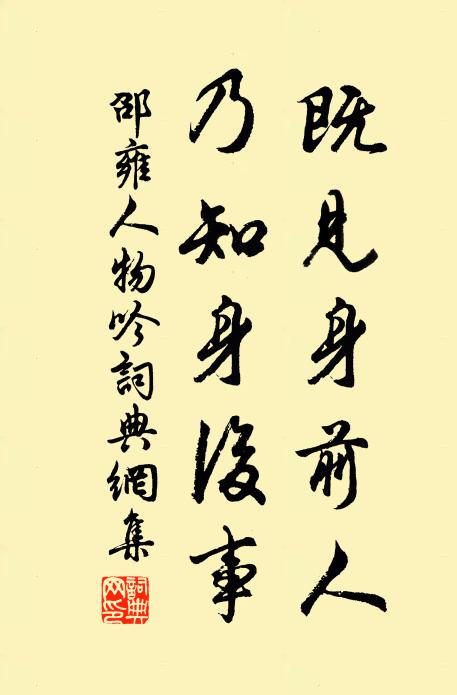 既見身前人
乃知身後事
邵雍人物吟詞典網集
詞典
网印